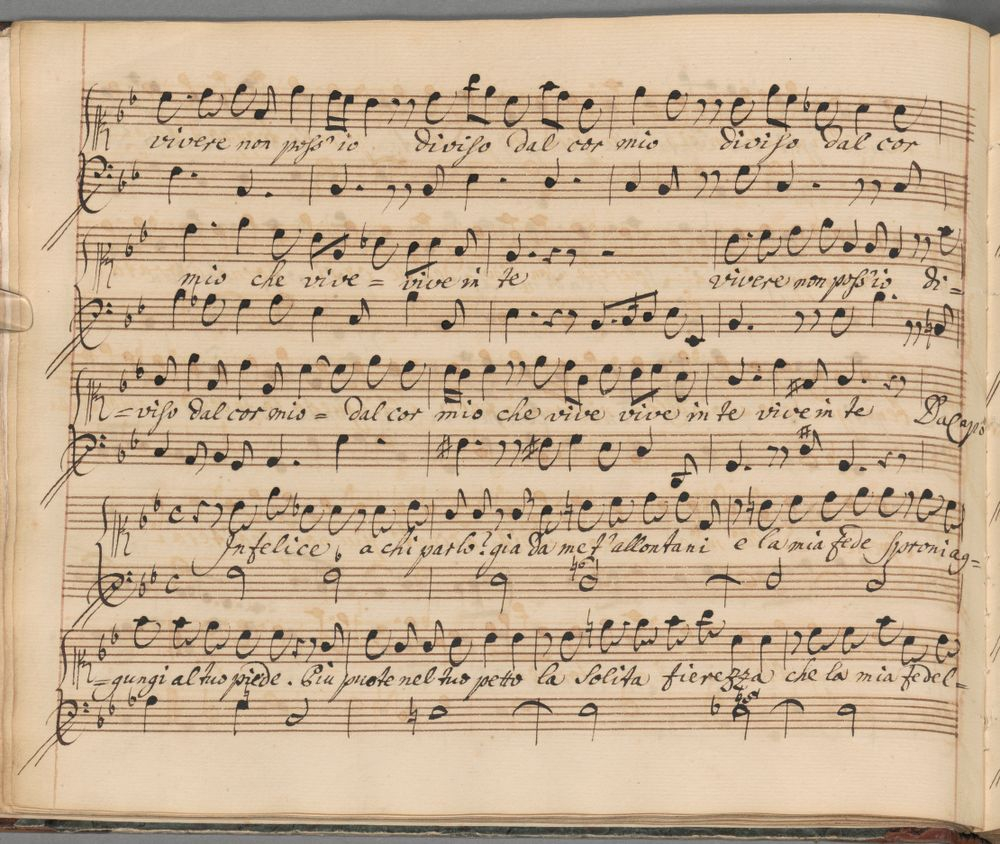 vivere non poss'io diviso dal cor mio diviso dal cor
mio che vive = vive in te vivere non poss'io di=
=viso dal cor mio = dal cor mio che vive vive in te vive in te Da Capo
Infelice, a chi parlo? gia da me t'allontani e la mia fede sproni ag=
=giungi al tuo piede. Più puote nel tuo petto la solita fierezza che la mia fedel=